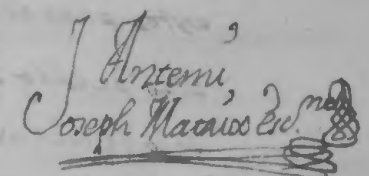 Antemi,
Joseph Mataix es.no